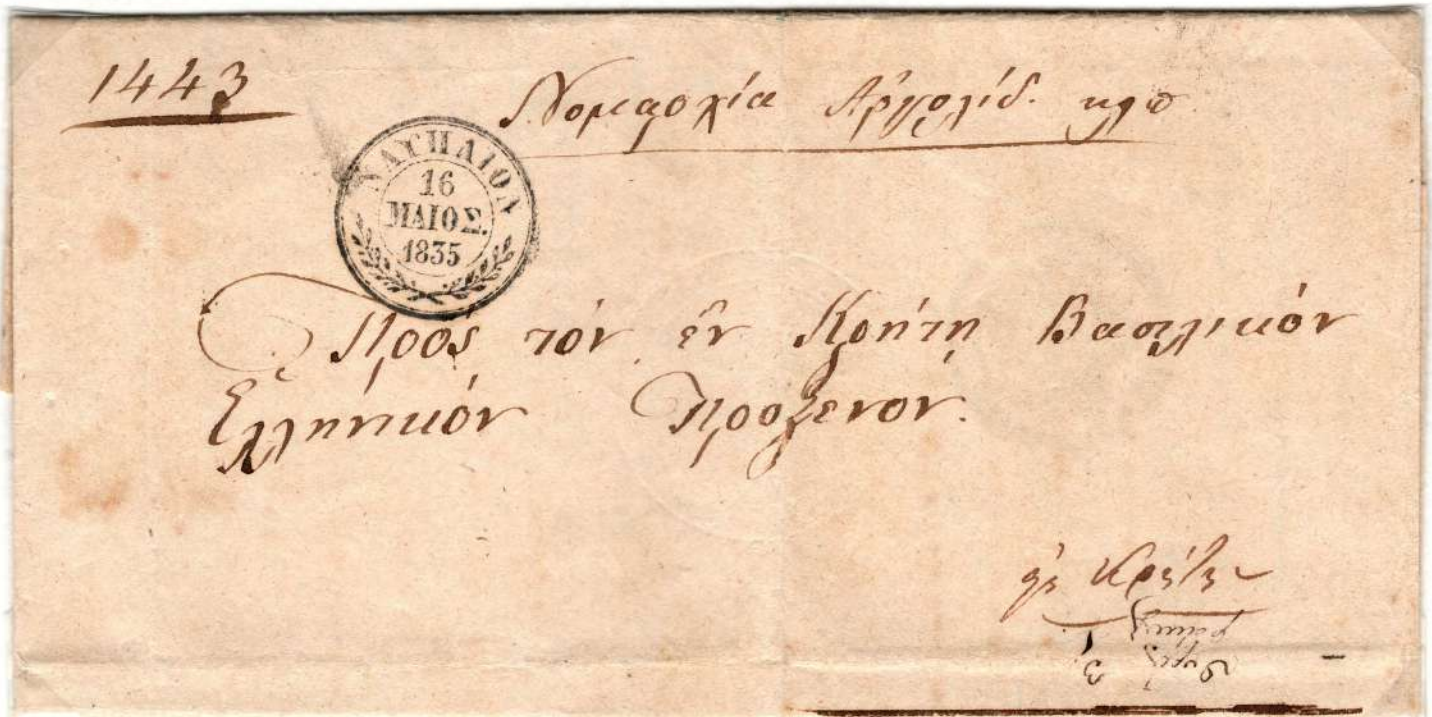 1443
Νομαρχία Ἀργολίδ. κλπ
ΝΑΥΠΛΙΟΝ
16
ΜΑΙΟΣ.
1835
Πρὸς τόν ἐν Κρήτῃ Βασιλικόν
Ἑλληνικόν Πρόξενον.
Κρήτην